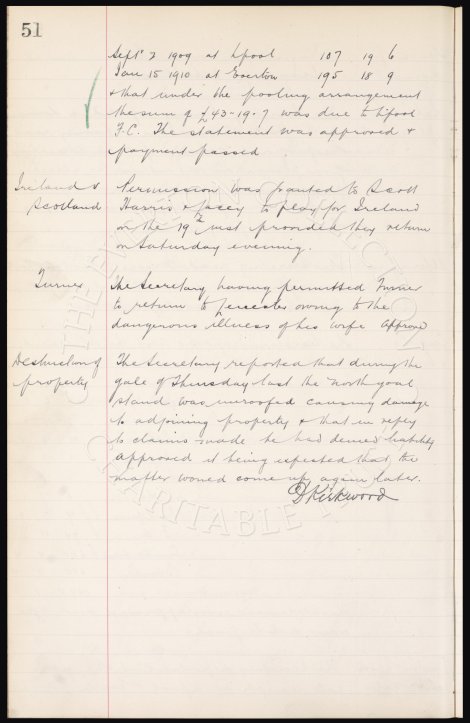 51
Septr 2 1909 at Lpool 107 19 6
Jan 15 1910 at Everton 195 18 9
& that under the pooling arrangement
the sum of £43-19-7 was due to Lpool
F.C. The statement was approved &
payment passed
Ireland v Permission was granted to Scott
Scotland Harris & Lacey to play for Ireland
on the 19th inst provided they return
on Saturday evening.
Turner The Secretary having permitted Turner
to return to Leicester owing to the
dangerous illness of his wife approved
Destruction of The Secretary reported that during the
property gale of Thursday last the North goal
stand was unroofed causing damage
to adjoining property & that in reply
to claims made he had denied liability
approved it being expected that the
matter would come up again later.
D Kirkwood
THE EVERTON COLLECTION
CHARITABLE TRUST